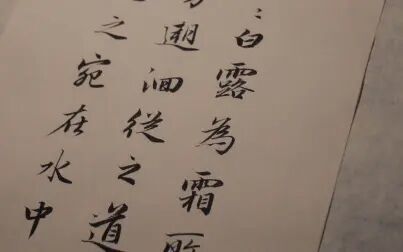 〻白露為霜所
遡洄從之道
之宛在水中